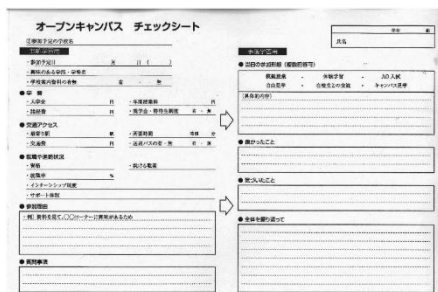 オープンキャンパス チェックシート
①参加予定の学校名
事前学習用
・参加予定日 月 日 ( )
・興味のある学部・学科名
・学校案内資料の有無 有 ・ 無
● 学 費
・入学金 円 ・年度授業料 円
・諸経費 円 ・奨学金・特待生制度 有 ・ 無
● 交通アクセス
・最寄り駅 駅 ・所要時間 時間 分
・交通費 円 ・送迎バスの有・無 有 ・ 無
● 就職や進路状況
・資格 ・就ける職業
・就職率 %
・インターンシップ制度
・サポート体制
● 参加理由
・例)資料を見て、〇〇コーナーに興味があるため
● 質問事項
学年 組
氏名
事後学習用
● 当日の参加形態(複数回答可)
模擬授業 ・ 体験学習 ・ AO入試
自由見学 ・ 在校生との交流 ・ キャンパス見学
(具体的内容)
● 良かったこと
● 気づいたこと
● 全体を振り返って